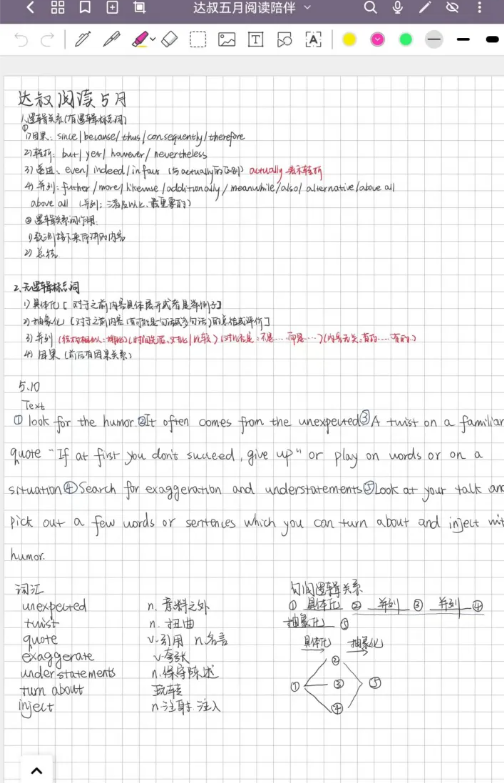 达叔五月阅读陪伴
达叔阅读5月
1.逻辑关系(有逻辑标志词)
①
1)因果: since/because/thus/consequently/therefore
2)转折: but/yet/however/nevertheless
3)递进: even/indeed/in fact (与actually的区别) actually 表示转折
4)并列: further/more/likewise/additionally/meanwhile/also/alternative/above all
above all (并列: 三者及以上, 最重要的)
②逻辑关系词作用
1)预测接下来所讲的内容
2)总结
2.无逻辑标志词
1)具体化[对于之前内容具体展开或者是举例子]
2)抽象化[对于之前内容的总结或评价]
3)并列
4)因果(前后有因果关系)
5.10
Text
① look for the humor.②It often comes from the unexpected③A twist on a familiar
quote "If at first you don't succeed, give up" or play on words or on a
situation④Search for exaggeration and understatements⑤Look at your talk and
pick out a few words or sentences which you can turn about and inject wit
humor.
词汇
unexpected n. 意料之外
twist n. 扭曲
quote v.引用 n.名言
exaggerate v.夸张
understatements n.保守陈述
turn about 玩转
inject n.注射,注入
句间逻辑关系
① 具体化 ② 并列 ③ 并列 ④
抽象化 ⑤
具体化 抽象化
②
① ③ ⑤
④